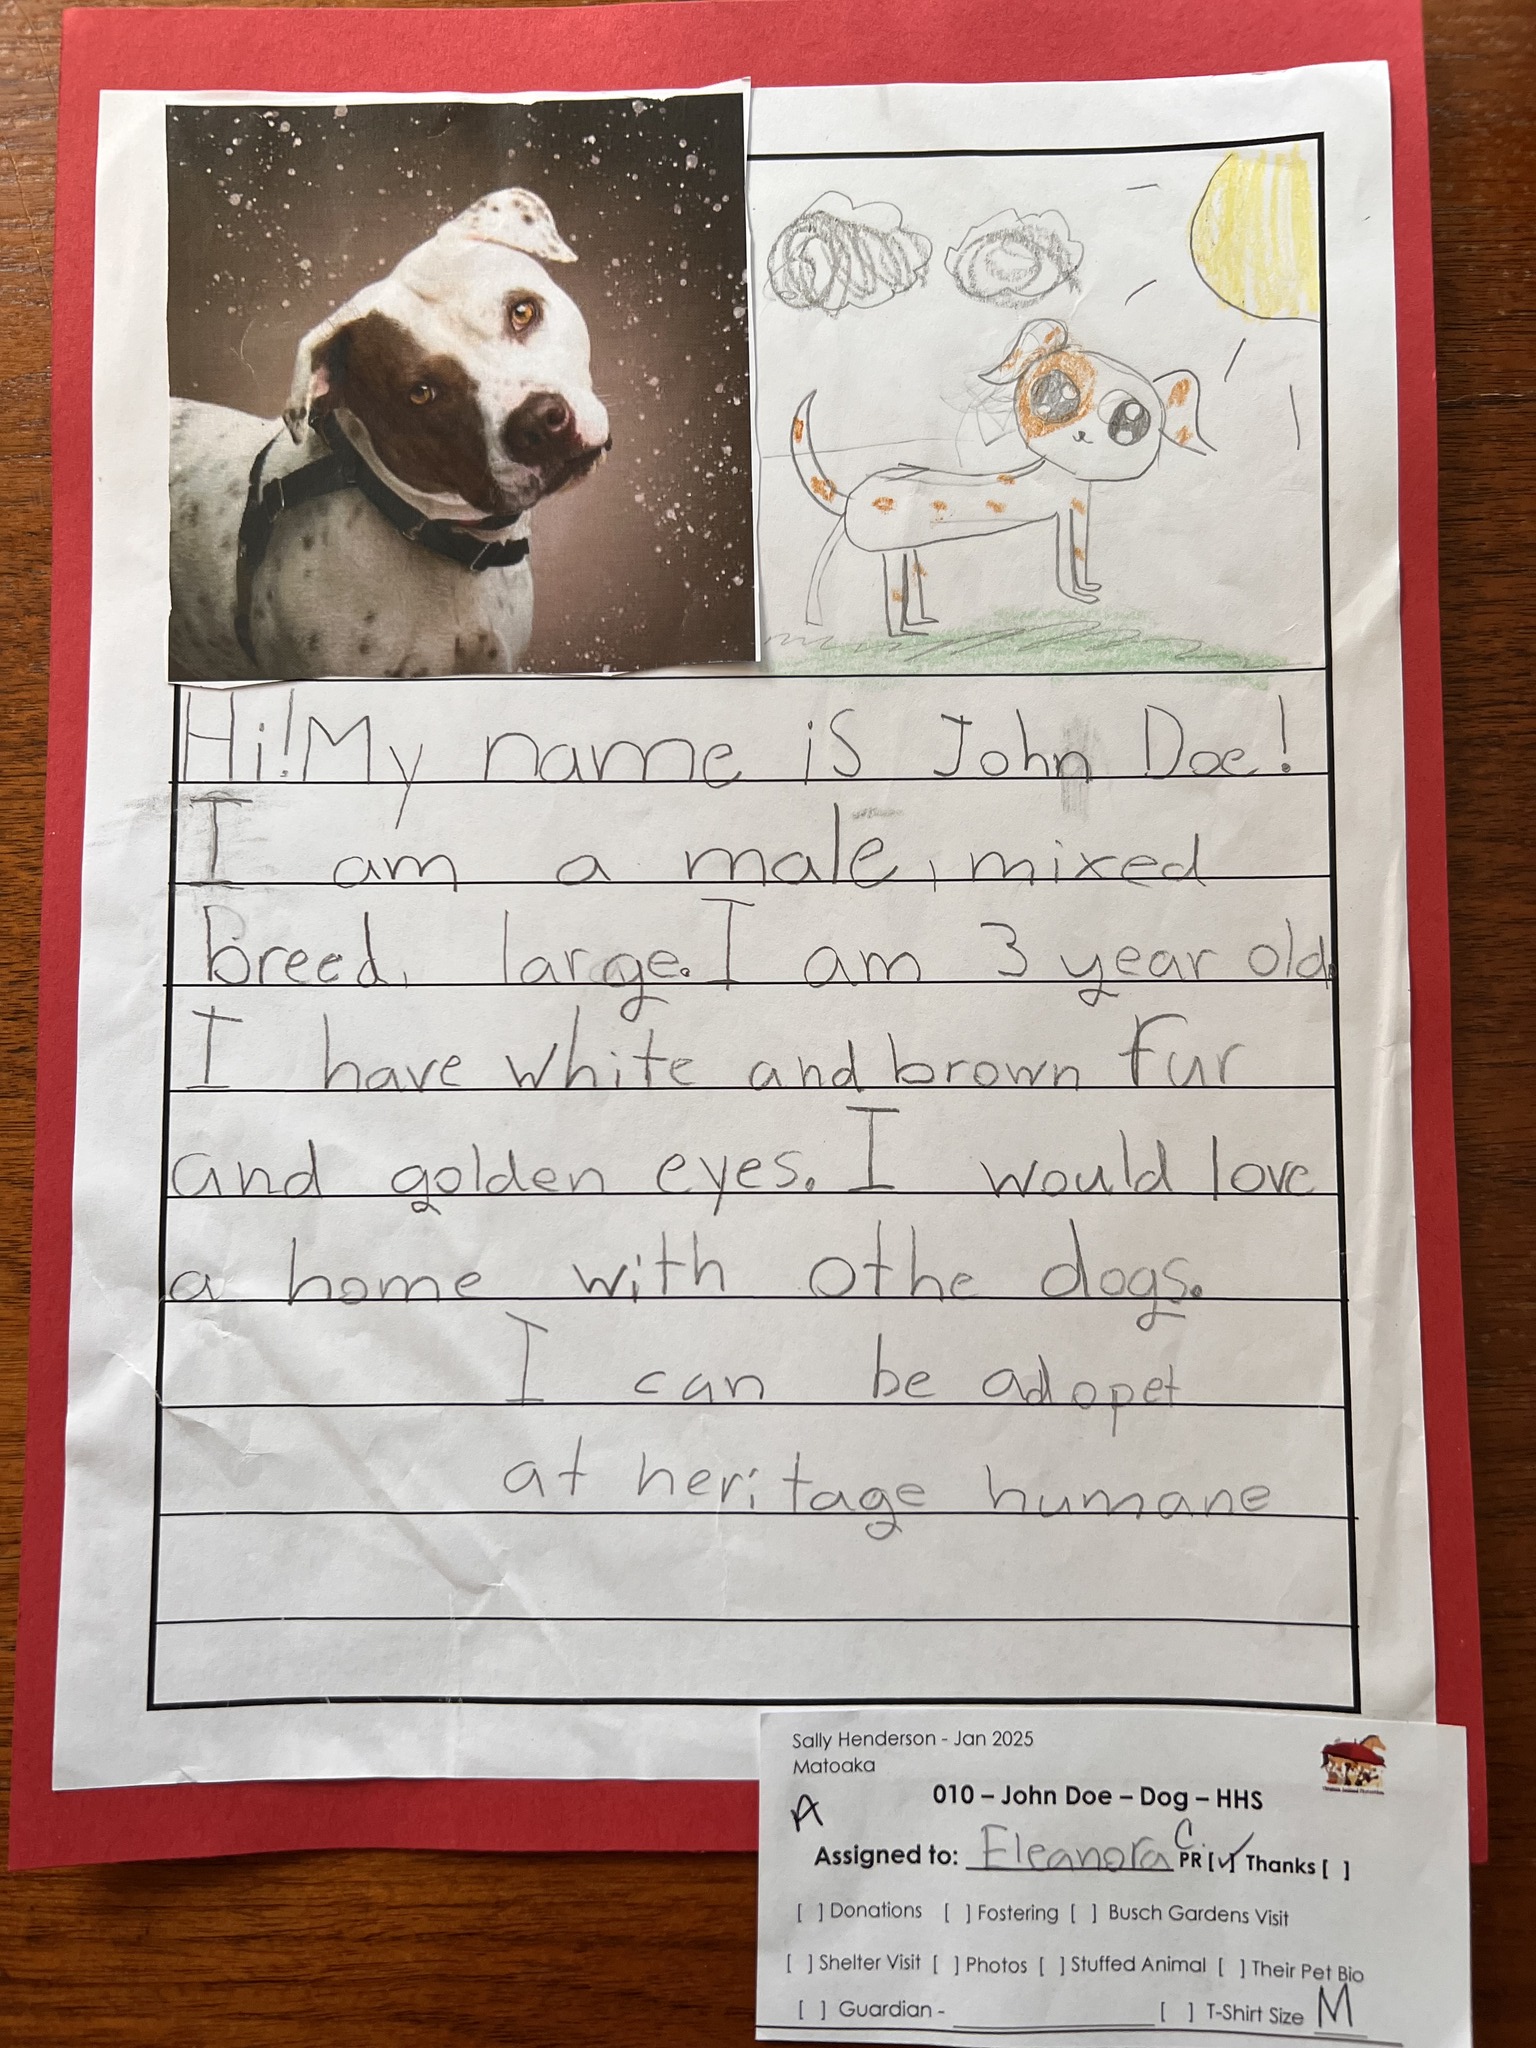 Hi! My name is John Doe!
I am a male, mixed
breed, large. I am 3 year old.
I have white and brown fur
and golden eyes. I would love
a home with othe dogs.
I can be adopet
at heritage humane
Sally Henderson - Jan 2025
Matoaka
010 – John Doe – Dog – HHS
A
Assigned to: Eleanora C. PR [✓] Thanks [ ]
[ ] Donations [ ] Fostering [ ] Busch Gardens Visit
[ ] Shelter Visit [ ] Photos [ ] Stuffed Animal [ ] Their Pet Bio
[ ] Guardian - ____________ [ ] T-Shirt Size M